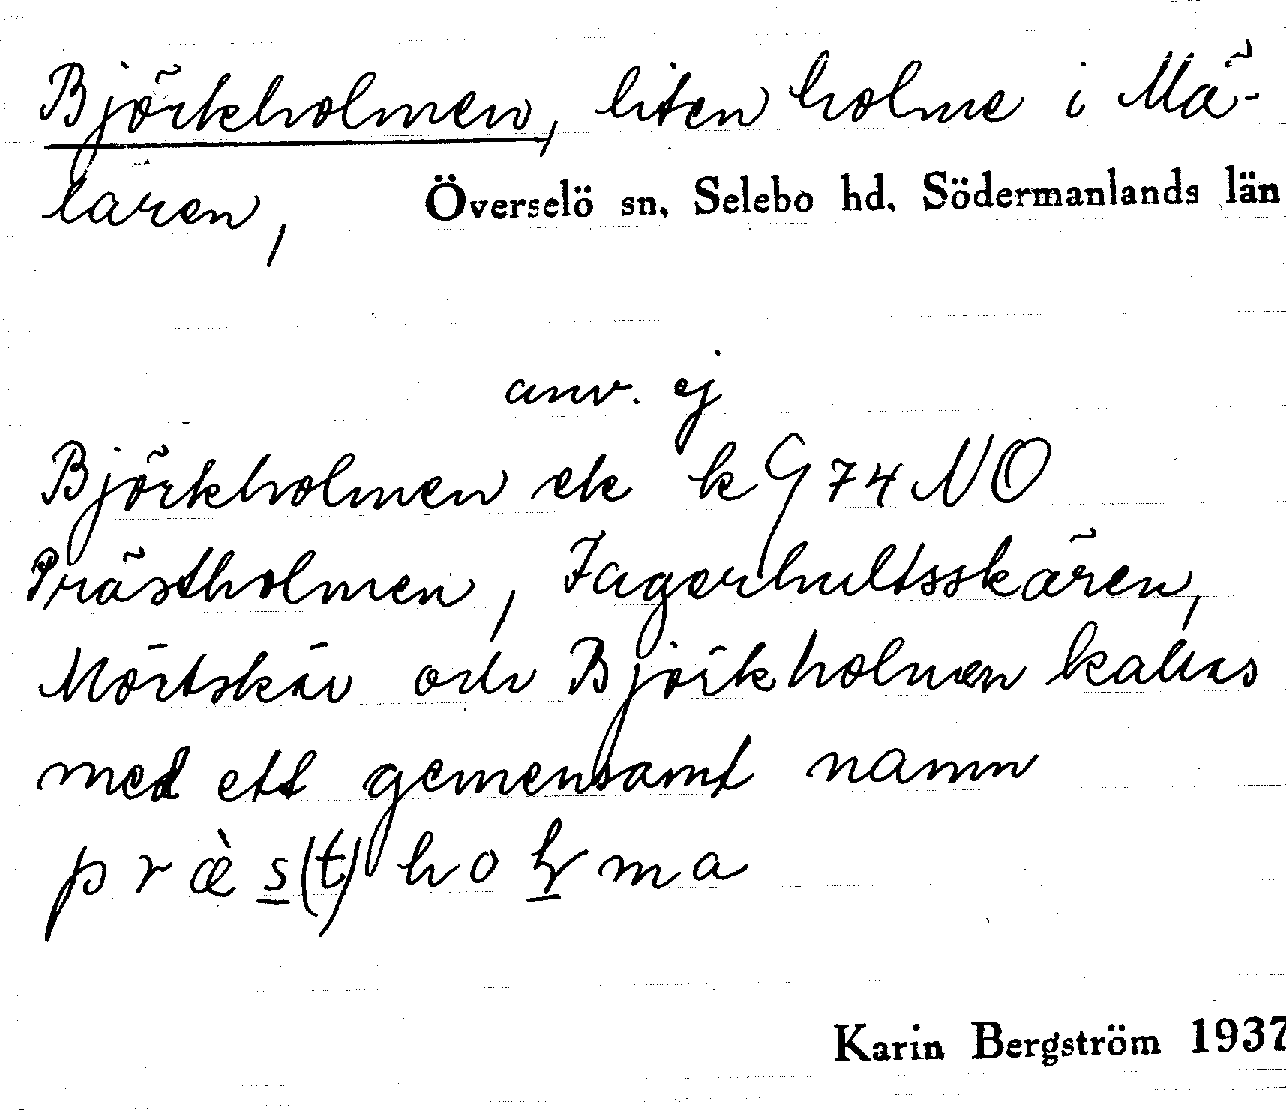 Björkholmen, liten holme i Mä-
laren, Överselö sn, Selebo hd, Södermanlands län
anv. ej
Björkholmen ek k G 74 NO
Prästholmen, Jagerhultsskären,
Mörtskär och Björkholmen kallas
med ett gemensamt namn
præ̀s(t)holma
Karin Bergström 1937